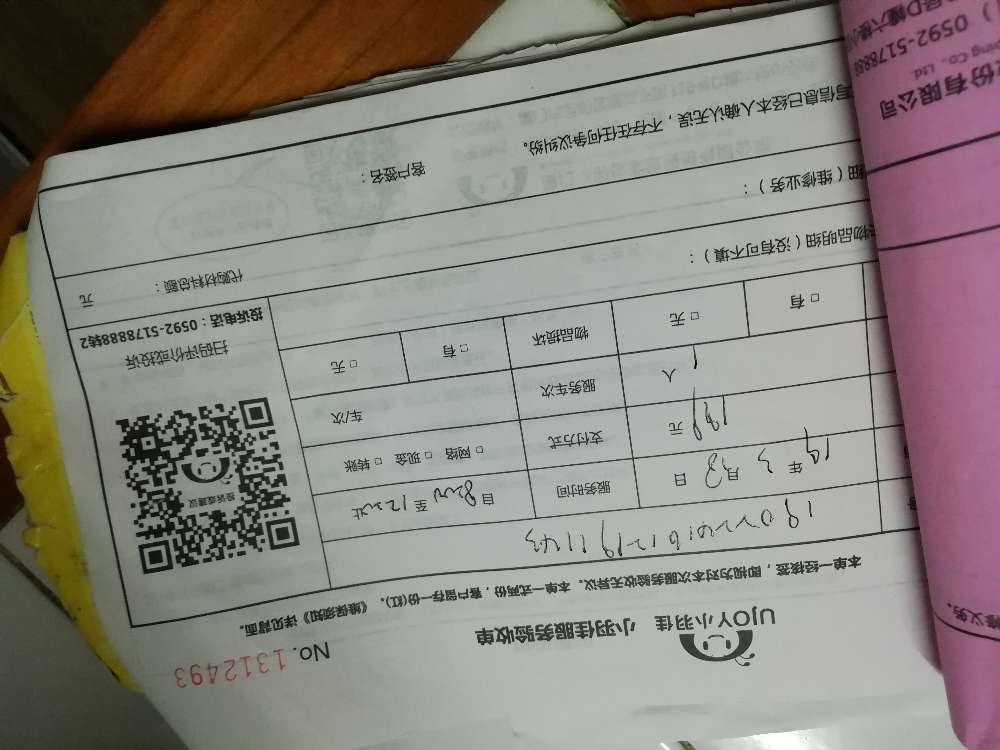 UJOY小羽佳 小羽佳服务验收单
No.1312493
本单一经核签，即视为对本次服务验收无异议。本单一式两份，客户留存一份(红)。《维保须知》详见背面。
19年3月8日 服务时间 自8:00至12:00止
199元 支付方式 □网络 □现金 □转账
1人 服务车次 车/次
□有 □无 物品损坏 □有 □无
投诉或建议
扫码评价或投诉
投诉电话：0592-5178888转2
物品明细（没有可不填）：
细（维修业务）：
代购材料总额： 元
写信息已经本人确认无误，不存在任何争议纠纷。
客户签名：
份有限公司
Co., Ltd.
0592-517888
修义务.